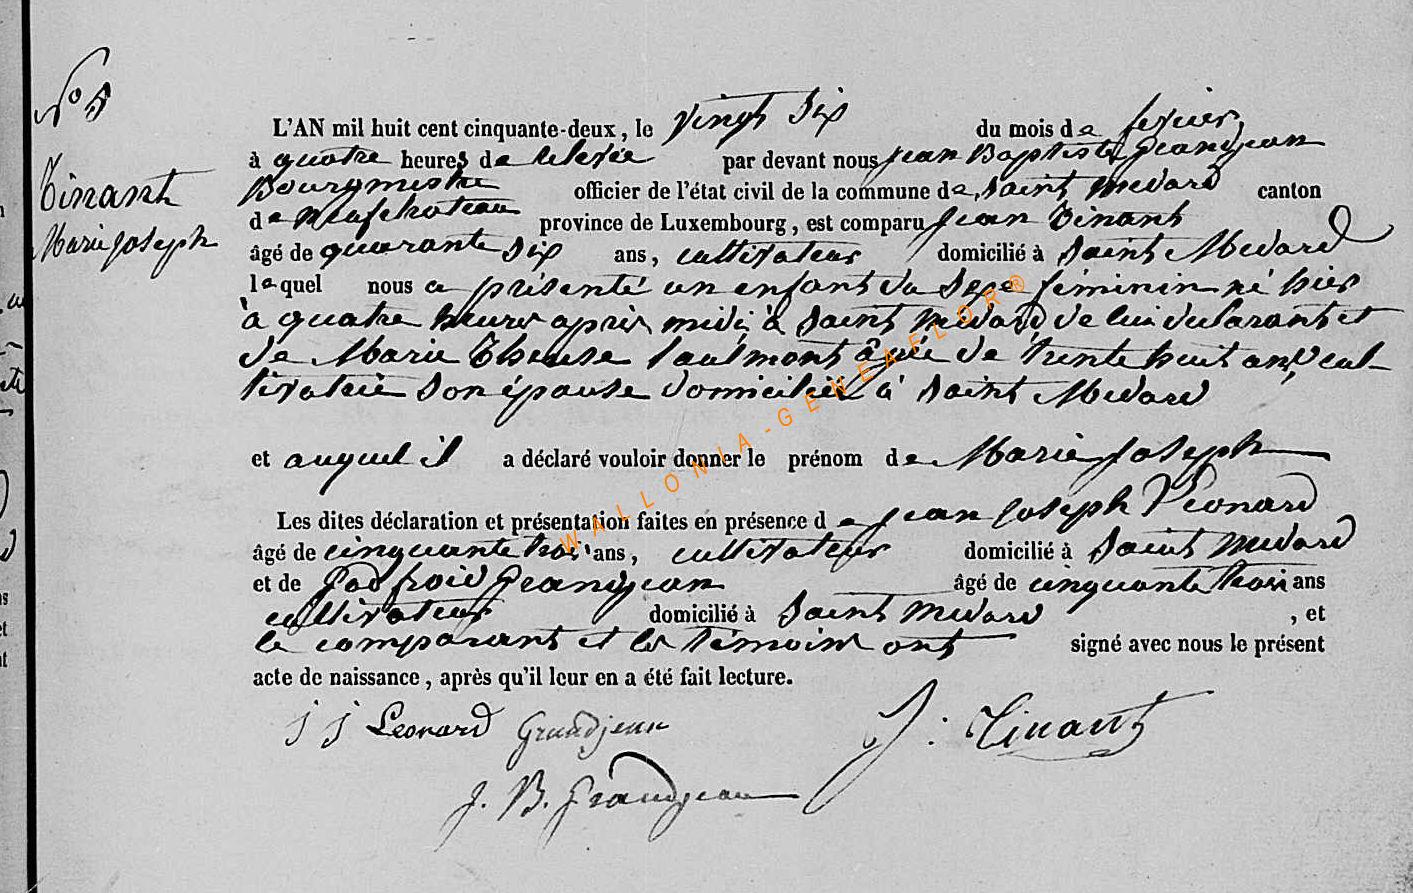 N° 5
Tinant
Marie Joseph
L'AN mil huit cent cinquante-deux, le vingt six du mois de fevrier,
à quatre heures de relevée par devant nous Jean Baptiste Grandjean
Bourgmestre officier de l'état civil de la commune de Saint Medard canton
de Neufchateau province de Luxembourg, est comparu Jean Tinant
âgé de quarante six ans, cultivateur domicilié à Saint Medard
lequel nous a présenté un enfant du sexe féminin né hier
à quatre heures après midi à Saint Medard de lui déclarant et
de Marie Therese Laulmont âgée de trente huit ans, cul-
tivatrice son épouse domiciliée à Saint Medard
et auquel il a déclaré vouloir donner le prénom de Marie Joseph
Les dites déclaration et présentation faites en présence de Jean Joseph Léonard
âgé de cinquante trois ans, cultivateur domicilié à Saint Medard
et de Godfroid Grandjean âgé de cinquante trois ans
cultivateur domicilié à Saint Medard , et
le comparant et les témoins ont signé avec nous le présent
acte de naissance, après qu'il leur en a été fait lecture.
J J Leonard Grandjean J. Tinant
J. B. Grandjean
WALLONIA-GENEAFLOR®